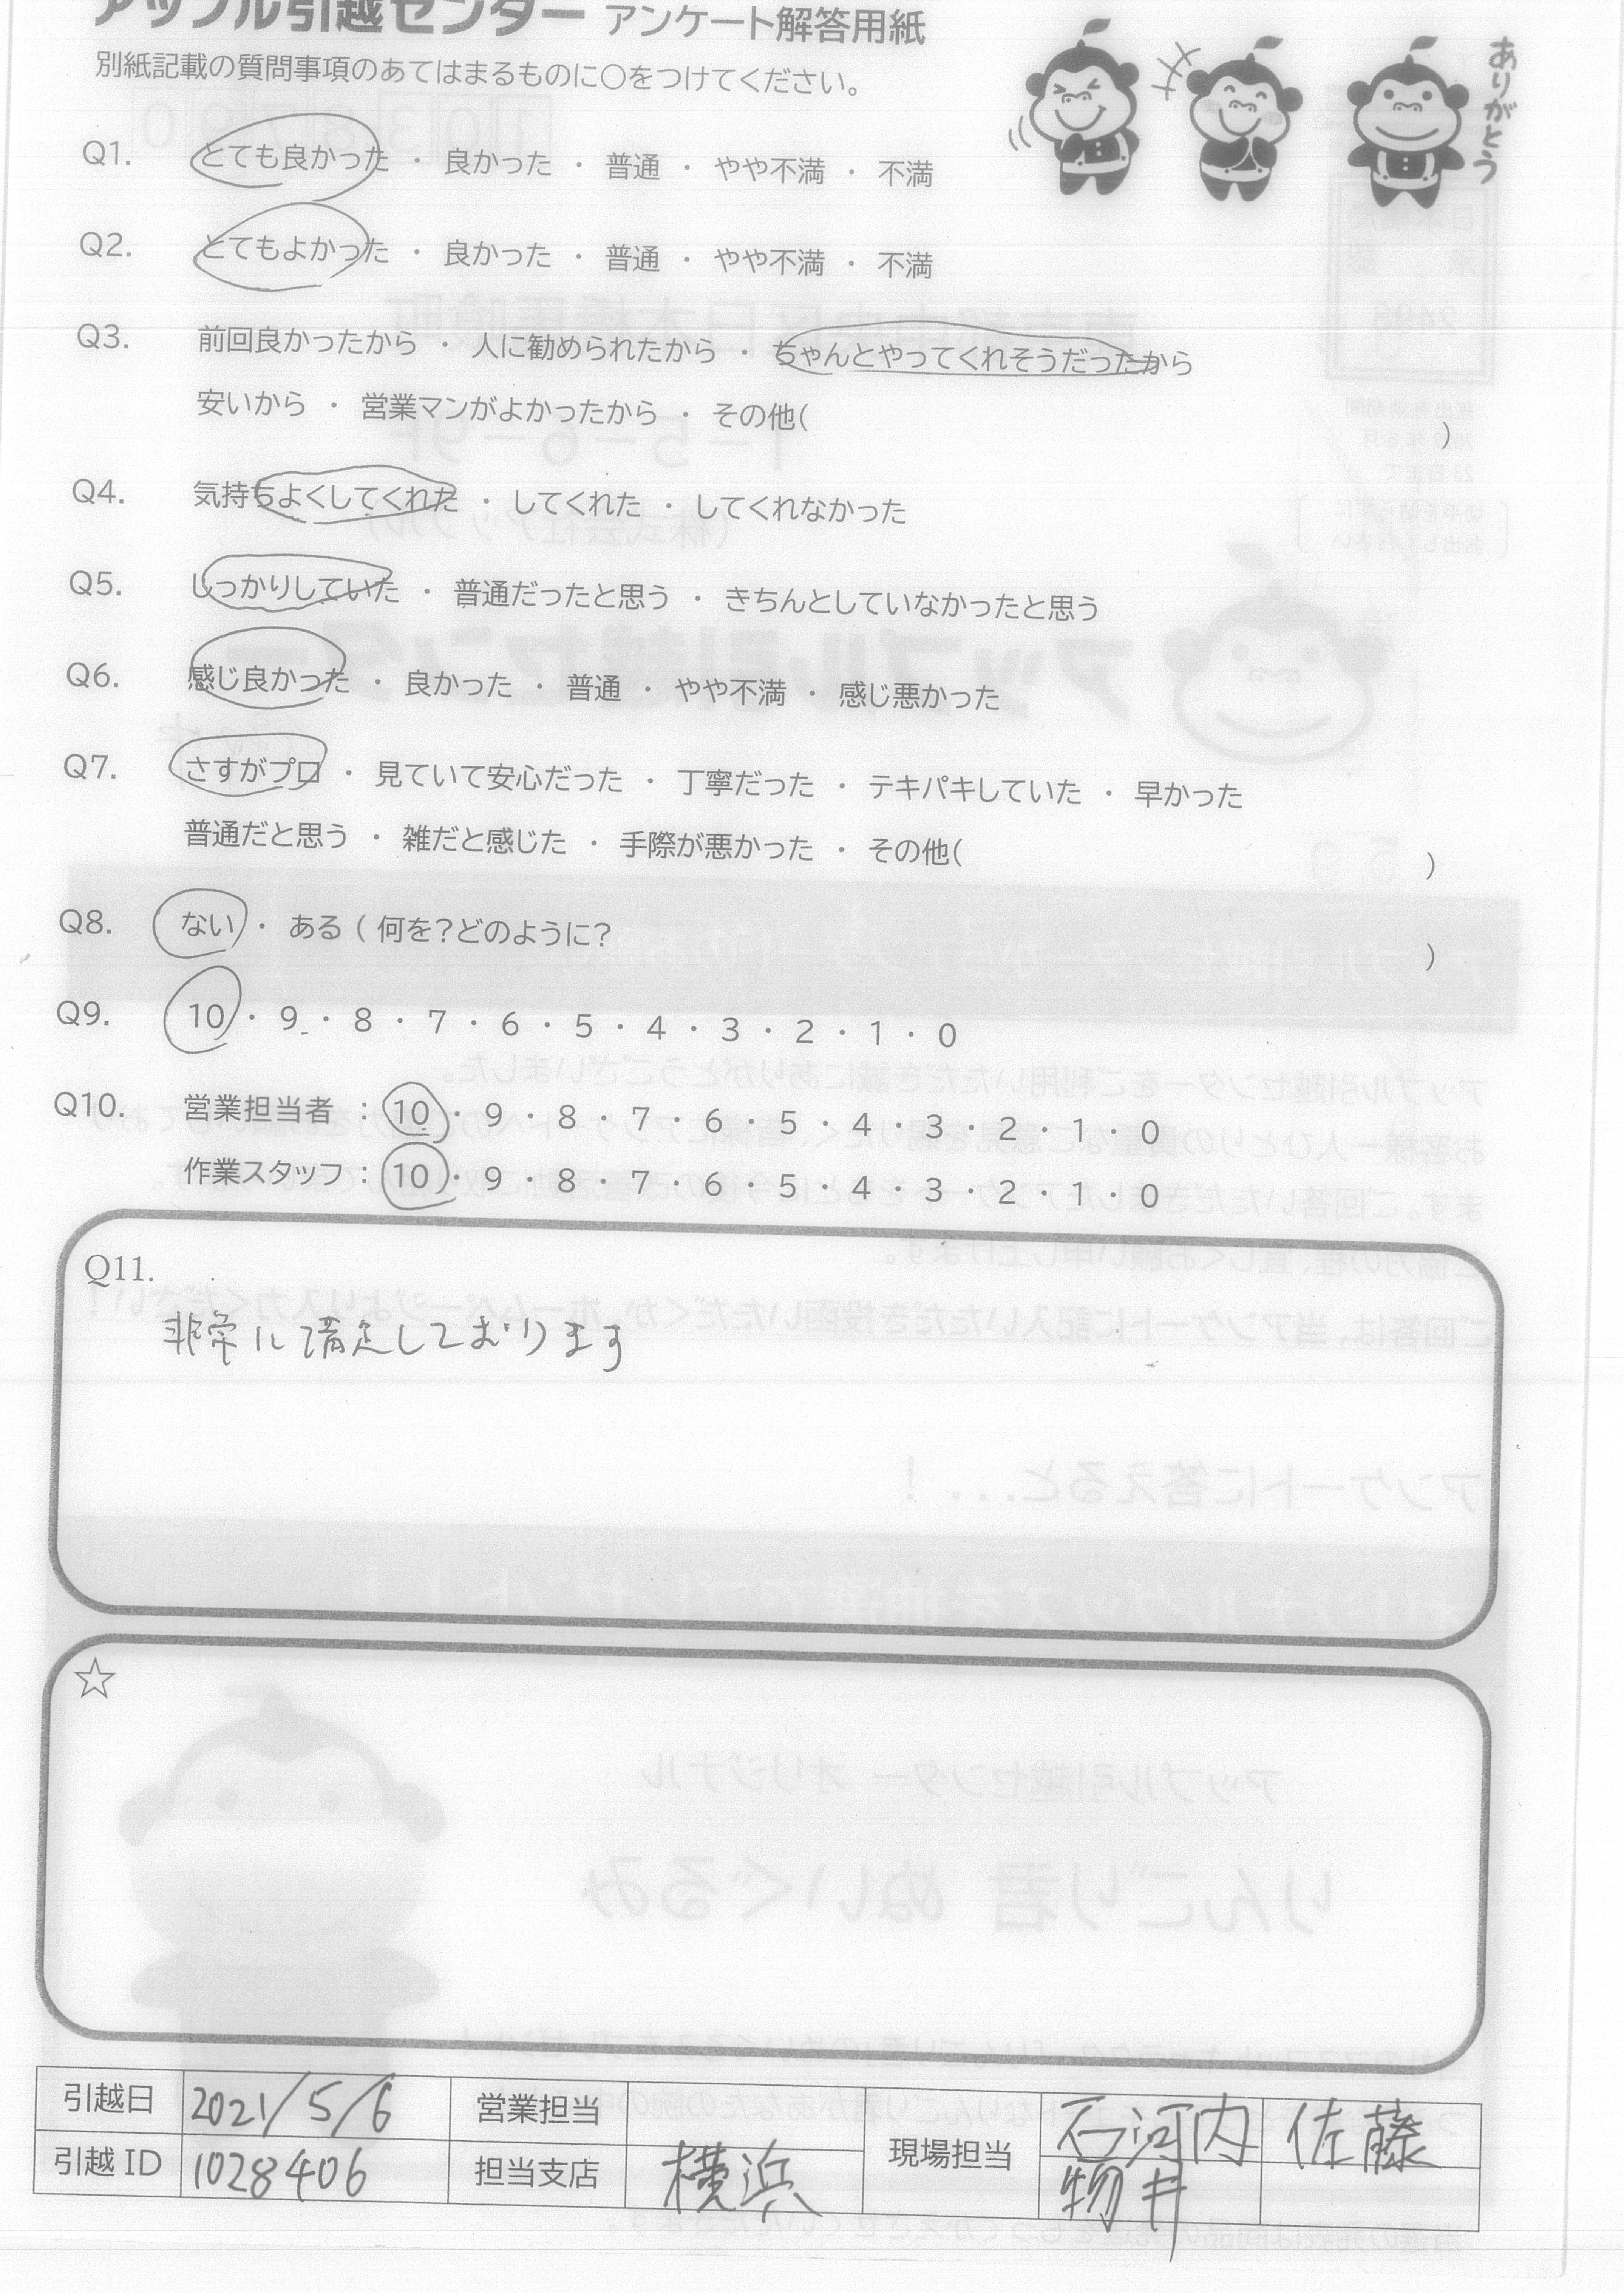 アップル引越センター アンケート解答用紙
別紙記載の質問事項のあてはまるものに〇をつけてください。
ありがとう
Q1. とても良かった ・ 良かった ・ 普通 ・ やや不満 ・ 不満
Q2. とてもよかった ・ 良かった ・ 普通 ・ やや不満 ・ 不満
Q3. 前回良かったから ・ 人に勧められたから ・ ちゃんとやってくれそうだったから
安いから ・ 営業マンがよかったから ・ その他( )
Q4. 気持ちよくしてくれた ・ してくれた ・ してくれなかった
Q5. しっかりしていた ・ 普通だったと思う ・ きちんとしていなかったと思う
Q6. 感じ良かった ・ 良かった ・ 普通 ・ やや不満 ・ 感じ悪かった
Q7. さすがプロ ・ 見ていて安心だった ・ 丁寧だった ・ テキパキしていた ・ 早かった
普通だと思う ・ 雑だと感じた ・ 手際が悪かった ・ その他( )
Q8. ない ・ ある ( 何を?どのように? )
Q9. 10 ・ 9 ・ 8 ・ 7 ・ 6 ・ 5 ・ 4 ・ 3 ・ 2 ・ 1 ・ 0
Q10. 営業担当者 : 10 ・ 9 ・ 8 ・ 7 ・ 6 ・ 5 ・ 4 ・ 3 ・ 2 ・ 1 ・ 0
作業スタッフ : 10 ・ 9 ・ 8 ・ 7 ・ 6 ・ 5 ・ 4 ・ 3 ・ 2 ・ 1 ・ 0
Q11.
非常に満足しております
☆
引越日 2021/5/6 営業担当 現場担当 石河内 佐藤
引越ID 1028406 担当支店 横浜 物井